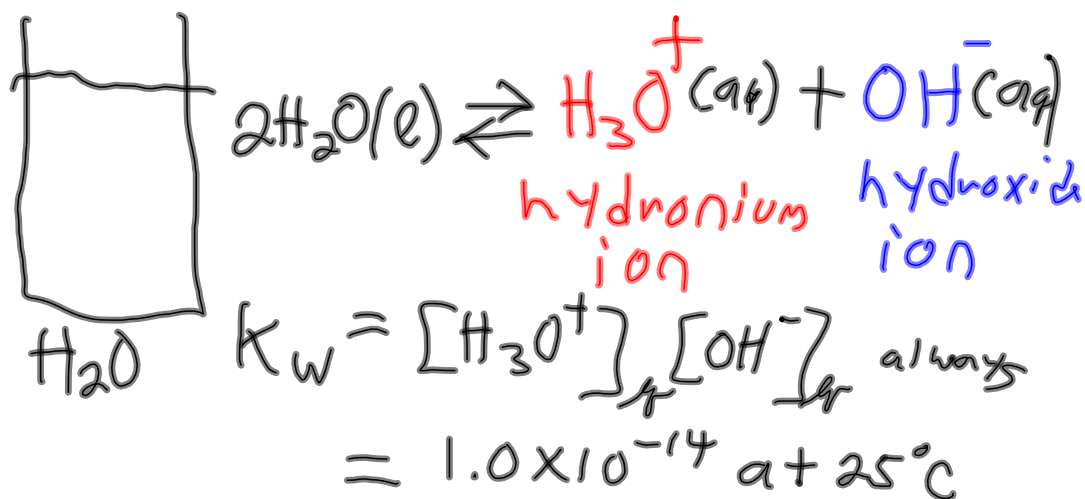 2H₂O(l) ⇌ H₃O⁺(aq) + OH⁻(aq)
hydronium ion
hydroxide ion
H₂O
Kw = [H₃O⁺]eq [OH⁻]eq always
= 1.0×10⁻¹⁴ at 25°C